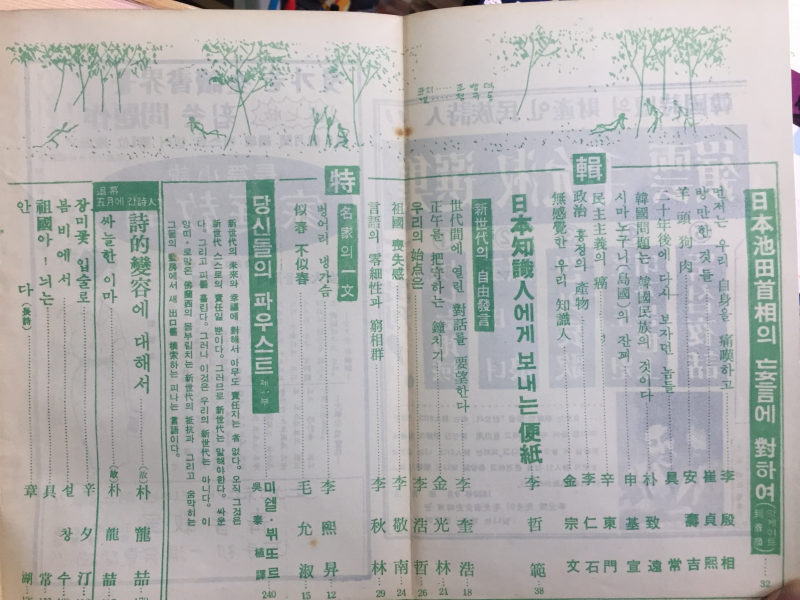 特輯
日本池田首相의 妄言에 對하여 (앙케이트) 32
먼저는 우리 自身을 痛嘆하고 李殷相
방만한 것들 崔貞熙
羊頭狗肉 安壽吉
二十年後에 다시 보자던 놈들 具常
韓國問題는 韓國民族의 것이다 朴致遠
시마노구니(島國)의 잔폐 申基宣
民主主義의 癌 辛東門
政治 흥정의 產物 李仁石
無感覺한 우리 知識人 金宗文
日本知識人에게 보내는 便紙 李哲範 38
新世代의 自由發言
世代間에 열린 對話를 要望한다 李奎浩 18
正午를 把守하는 鐘치기 金光林 21
우리의 始点은 李浩哲 26
祖國 喪失感 李敬南 24
言語의 零細性과 窮相群 李秋林 29
名家의 一文
벙어리 냉가슴 李熙昇 12
似春 不似春 毛允淑 15
당신들의 파우스트 미셀·뷔또르 吳泰植譯 240
新世代의 未來와 幸福에 對해서 아무도 責任지는 者 없다. 오직 그것은
新世代 스스로의 責任일 뿐이다. 그러므로 新世代는 말해야한다. 싸운
다. 그리고 피를 흘린다. 그러나 이것은 우리의 新世代는 아니다. 이
앙띠·로망은 佛蘭西의 몸부림치는 新世代의 抵抗과 그리고 움직이는
그들의 監房에서 새 出口를 摸索하는 피나는 言語이다.
五月에 간 詩人
詩的變容에 대해서 (故)朴龍喆
싸늘한 이마 (故)朴龍喆
장미꽃 입술로 辛夕汀
봄비에서 설창수
祖國아! 늬는 具常
안다 (長詩) 章湖